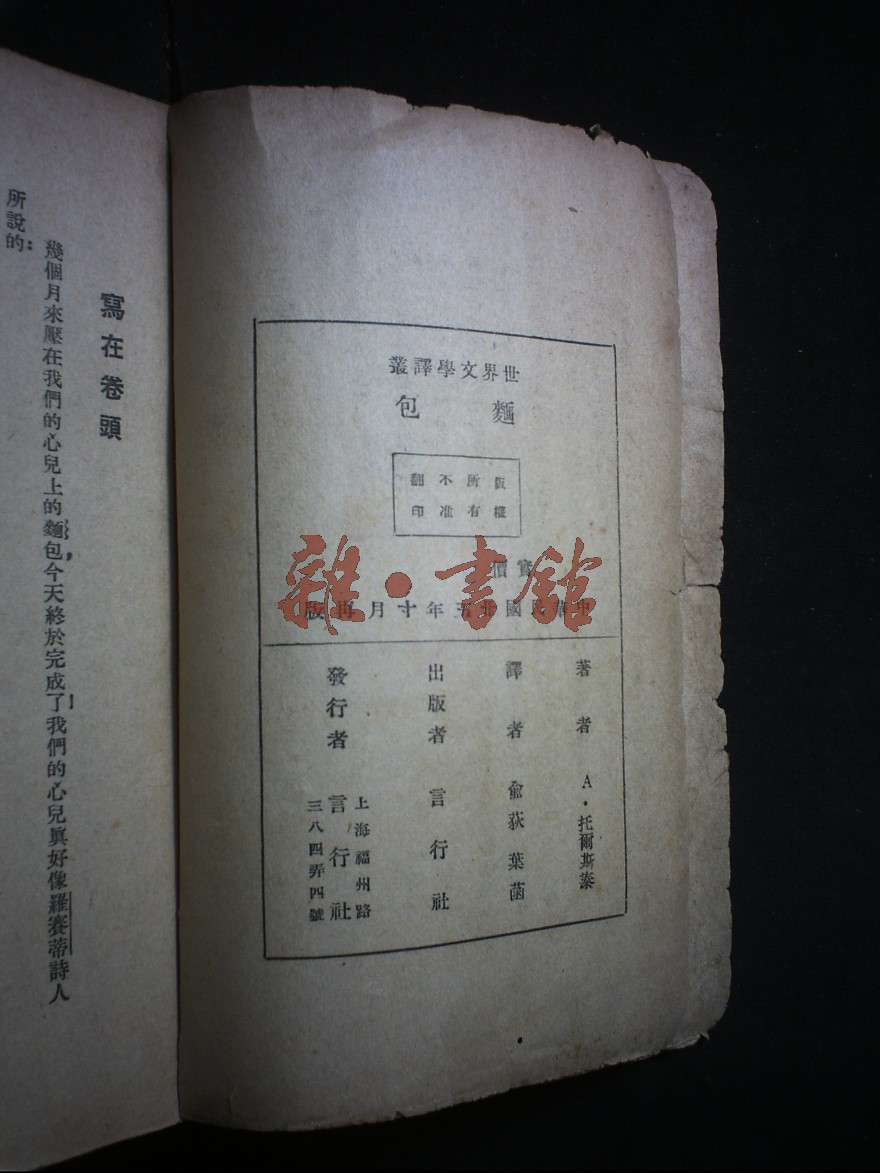 世界文學譯叢
麵包
版權
所有
不准
翻印
實價
中華民國卅五年十月再版
著者 A·托爾斯泰
譯者 俞荻 葉菡
出版者 言行社
發行者 言行社
上海福州路
三八四弄四號
雜·書館
寫在卷頭
幾個月來壓在我們的心兒上的麵包,今天終於完成了!我們的心兒眞好像羅賽蒂詩人
所說的: